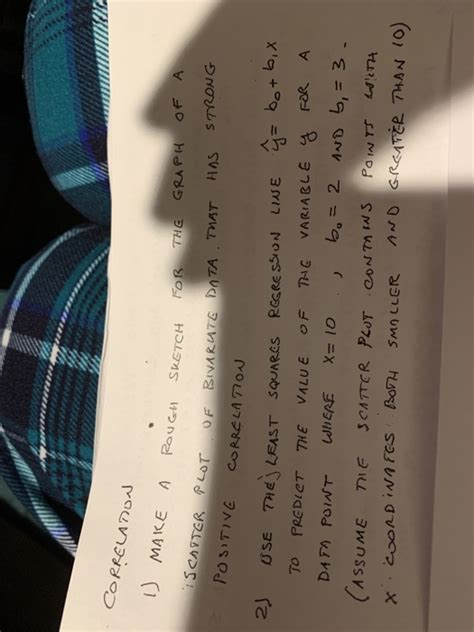 CORRELATION
1) MAKE A ROUGH SKETCH FOR THE GRAPH OF A
SCATTER PLOT OF BIVARIATE DATA THAT HAS STRONG
POSITIVE CORRELATION
2) USE THE LEAST SQUARES REGRESSION LINE ŷ = b₀ + b₁x
TO PREDICT THE VALUE OF THE VARIABLE y FOR A
DATA POINT WHERE x = 10 , b₀ = 2 AND b₁ = 3.
(ASSUME THE SCATTER PLOT CONTAINS POINTS WITH
x COORDINATES BOTH SMALLER AND GREATER THAN 10)